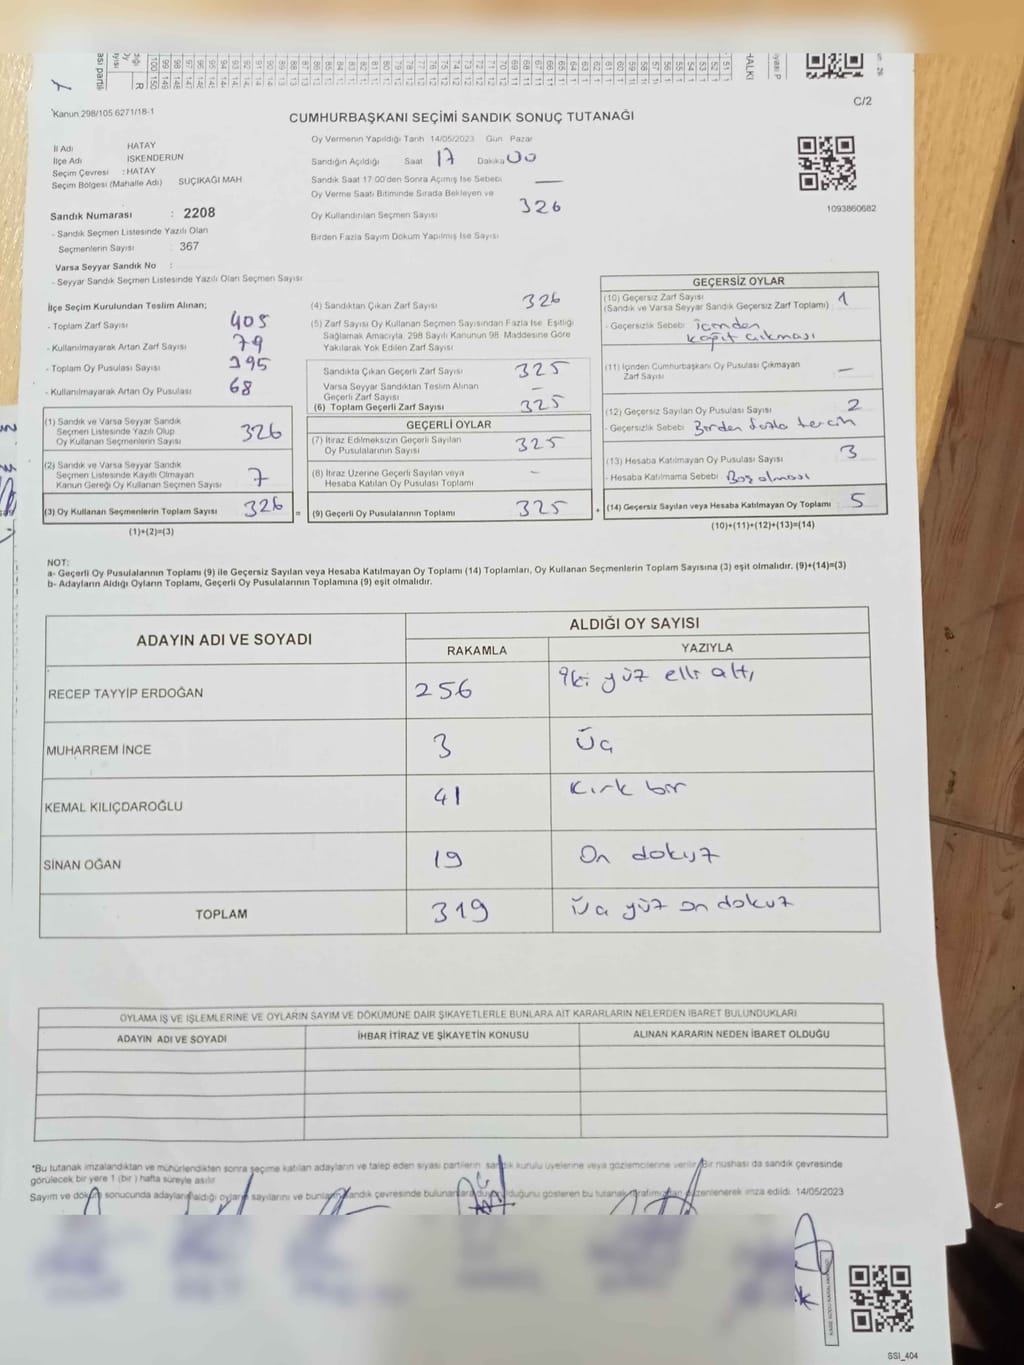 C/2
Kanun 298/105 6271/18-1
CUMHURBAŞKANI SEÇİMİ SANDIK SONUÇ TUTANAĞI
İl Adı HATAY
İlçe Adı İSKENDERUN
Seçim Çevresi : HATAY
Seçim Bölgesi (Mahalle Adı) SUÇIKAĞI MAH
Sandık Numarası : 2208
- Sandık Seçmen Listesinde Yazılı Olan
Seçmenlerin Sayısı : 367
Varsa Seyyar Sandık No :
- Seyyar Sandık Seçmen Listesinde Yazılı Olan Seçmen Sayısı
Oy Vermenin Yapıldığı Tarih 14/05/2023 Gün Pazar
Sandığın Açıldığı Saat 17 Dakika 00
Sandık Saat 17:00'den Sonra Açımış İse Sebebi —
Oy Verme Saati Bitiminde Sırada Bekleyen ve
Oy Kullandırılan Seçmen Sayısı 326
Birden Fazla Sayım Döküm Yapılmış İse Sayısı
1093860682
İlçe Seçim Kurulundan Teslim Alınan;
- Toplam Zarf Sayısı 405
- Kullanılmayarak Artan Zarf Sayısı 79
- Toplam Oy Pusulası Sayısı 395
- Kullanılmayarak Artan Oy Pusulası 68
(1) Sandık ve Varsa Seyyar Sandık
Seçmen Listesinde Yazılı Olup
Oy Kullanan Seçmenlerin Sayısı 326
(2) Sandık ve Varsa Seyyar Sandık
Seçmen Listesinde Kayıtlı Olmayan
Kanun Gereği Oy Kullanan Seçmen Sayısı 7
(3) Oy Kullanan Seçmenlerin Toplam Sayısı 326
(1)+(2)=(3)
(4) Sandıktan Çıkan Zarf Sayısı 326
(5) Zarf Sayısı Oy Kullanan Seçmen Sayısından Fazla İse, Eşitliği
Sağlamak Amacıyla, 298 Sayılı Kanunun 98. Maddesine Göre
Yakılarak Yok Edilen Zarf Sayısı
Sandıkta Çıkan Geçerli Zarf Sayısı 325
Varsa Seyyar Sandıktan Teslim Alınan
Geçerli Zarf Sayısı —
(6) Toplam Geçerli Zarf Sayısı 325
GEÇERLİ OYLAR
(7) İtiraz Edilmeksizin Geçerli Sayılan
Oy Pusulalarının Sayısı 325
(8) İtiraz Üzerine Geçerli Sayılan veya
Hesaba Katılan Oy Pusulası Toplamı -
= (9) Geçerli Oy Pusulalarının Toplamı 325 +
GEÇERSİZ OYLAR
(10) Geçersiz Zarf Sayısı
(Sandık ve Varsa Seyyar Sandık Geçersiz Zarf Toplamı) 1
- Geçersizlik Sebebi içinden
kağıt çıkması
(11) İçinden Cumhurbaşkanı Oy Pusulası Çıkmayan
Zarf Sayısı —
(12) Geçersiz Sayılan Oy Pusulası Sayısı 2
- Geçersizlik Sebebi Birden fazla tercih
(13) Hesaba Katılmayan Oy Pusulası Sayısı 3
- Hesaba Katılmama Sebebi Boş olması
(14) Geçersiz Sayılan veya Hesaba Katılmayan Oy Toplamı 5
(10)+(11)+(12)+(13)=(14)
NOT:
a- Geçerli Oy Pusulalarının Toplamı (9) ile Geçersiz Sayılan veya Hesaba Katılmayan Oy Toplamı (14) Toplamları, Oy Kullanan Seçmenlerin Toplam Sayısına (3) eşit olmalıdır. (9)+(14)=(3)
b- Adayların Aldığı Oyların Toplamı, Geçerli Oy Pusulalarının Toplamına (9) eşit olmalıdır.
ADAYIN ADI VE SOYADI ALDIĞI OY SAYISI
RAKAMLA YAZIYLA
RECEP TAYYİP ERDOĞAN 256 İki yüz elli altı
MUHARREM İNCE 3 Üç
KEMAL KILIÇDAROĞLU 41 Kırk bir
SİNAN OĞAN 19 On dokuz
TOPLAM 319 Üç yüz on dokuz
OYLAMA İŞ VE İŞLEMLERİNE VE OYLARIN SAYIM VE DÖKÜMÜNE DAİR ŞİKAYETLERLE BUNLARA AİT KARARLARIN NELERDEN İBARET BULUNDUKLARI
ADAYIN ADI VE SOYADI İHBAR İTİRAZ VE ŞİKAYETİN KONUSU ALINAN KARARIN NEDEN İBARET OLDUĞU
*Bu tutanak imzalandıktan ve mühürlendikten sonra seçime katılan adayların ve talep eden siyasi partilerin sandık kurulu üyelerine veya gözlemcilerine verilir. Bir nüshası da sandık çevresinde
görülecek bir yere 1 (bir) hafta süreyle asılır
Sayım ve döküm sonucunda adayların aldığı oyların sayılarını ve bunların sandık çevresinde bulunanlara duyurulduğunu gösteren bu tutanak tarafımızdan düzenlenerek imza edildi. 14/05/2023
SSI_404